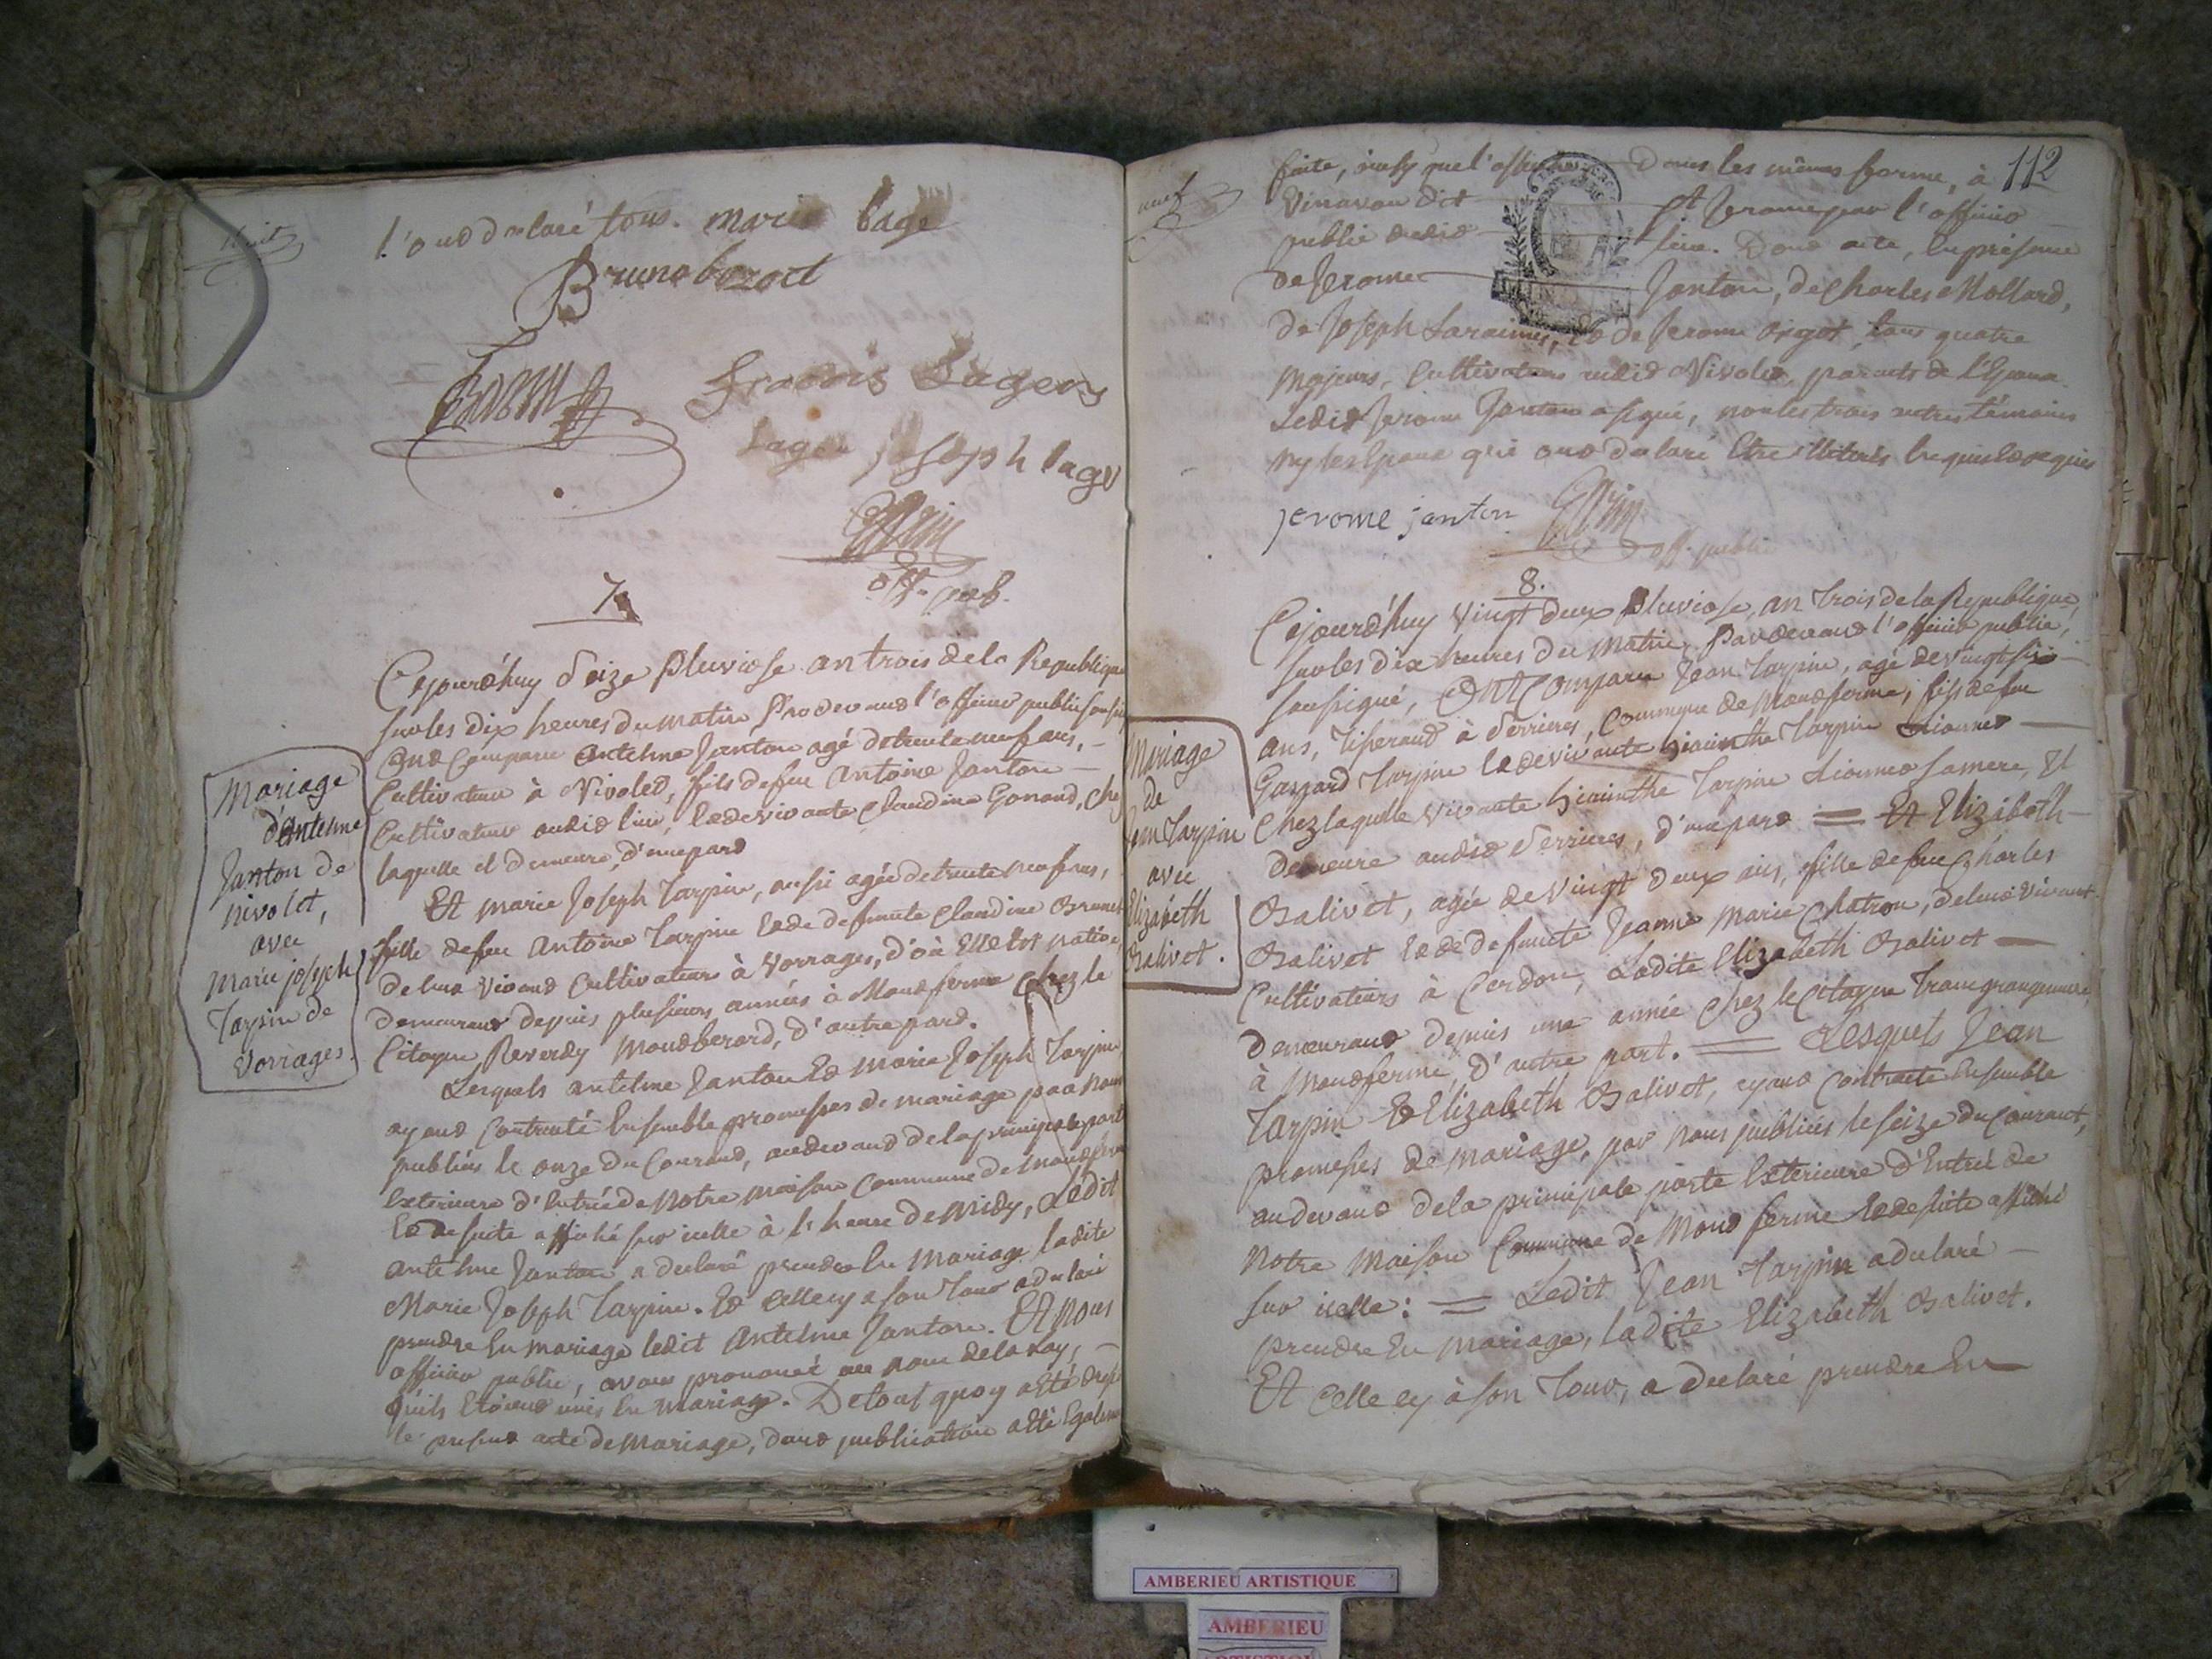 huit
l'ont declaré tous. marie bage
Bruno bozoit
francois Lagers
Lager joseph bage
off. pub.
7
Cejourd'huy Seize Pluviose an trois de la Republique
sur les Dix heures du matin Pardevant l'officier public soussig
ont comparu Antelme Janton agé de trente neuf ans, –
Cultivateur à Nivolet, fils de feu Antoine Janton –
Cultivateur audit lieu, et de vivante Claudine Gonand, chez
laquelle il demeure, d'une part
Et Marie Joseph Tarpin, aussi agée de trente neuf ans,
fille de feu Antoine Tarpin et de defunte Claudine Brunet
de leur vivant Cultivateurs à Vorrages, d'où Elle est native
demeurant depuis plusieurs années à Montferme chez le
Citoyen Reverdy Montberard, d'autre part.
Lesquels antelme Janton et Marie Joseph Tarpin
ayant Contracté Ensemble promesses de mariage par nous
publiées le onze du Courant, audevant de la principale porte
Exterieure d'Entrée de Notre maison Commune de Montferme
Et de suite affiché sur icelle à l'heure de Midy, Ledit
antelme Janton a declaré prendre En Mariage ladite
Marie Joseph Tarpin. Et celle cy a son Tour a declaré
prendre En mariage ledit Antelme Janton. Et Nous
officier public, avons prononcé au nom de la Loy, –
qu'ils Etoient unis En Mariage. De tout quoy a Eté dressé
le present acte de Mariage, dont publication a Eté Egalement
Mariage
d'Antelme
Janton de
nivolet,
avec
Marie joseph
Tarpin de
Vorrages.
112
neuf
faite, ainsy que l'affiche Dans les mêmes forme, à
Vinavau dit St Jerome par l'officier
public dudit lieu. Dont acte, En présence
de Jerome Janton, de Charles Mollard,
de Joseph Laraimes, Et de Jerome Origot, tous quatre
Majeurs, Cultivateurs audit Nivolet, parents de l'Epoux.
Ledit Jerome Janton a signé, non les trois autres témoins
ny les Epoux qui ont declaré Etre illiterés Enquis et requis
jerome janton
off. public
8.
Cejourd'huy Vingt deux Pluviose, an Trois de la Republique,
sur les dix heures du Matin, Pardevant l'officier public,
soussigné, Ont Comparu Jean Tarpin, agé de vingt six –
ans, Tisserand à Serrieres, Commune de Montferme, fils de feu
Gaspard Tarpin et de vivante hiacinthe Tarpin Lionnet –
Chez laquelle vivante hiacinthe Tarpin Lionnet sa mere, Il
demeure audit Serrieres, d'une part = Et Elizabeth –
Balivet, agée de Vingt deux ans, fille de feu Charles
Balivet et de defuncte Jeanne Marie Chatron, de leur vivant
Cultivateurs à Cerdon, Ladite Elizabeth Balivet –
demeurant depuis une année chez le Citoyen
à Montferme, d'autre part. = Lesquels Jean
Tarpin Et Elizabeth Balivet, ayant Contracté Ensemble
promesses de Mariage, par nous publiées le seize du Courant,
audevant de la principale porte Exterieure d'Entrée de
Notre Maison Commune de Montferme Et de suite affiché
sur icelle: = Ledit Jean Tarpin a declaré –
prendre En Mariage, ladite Elizabeth Balivet.
Et Celle cy à son Tour, a declaré prendre En
Mariage
de
Jean Tarpin
avec
Elizabeth
Balivet.
AMBERIEU ARTISTIQUE
AMBERIEU
ARTISTIQUE